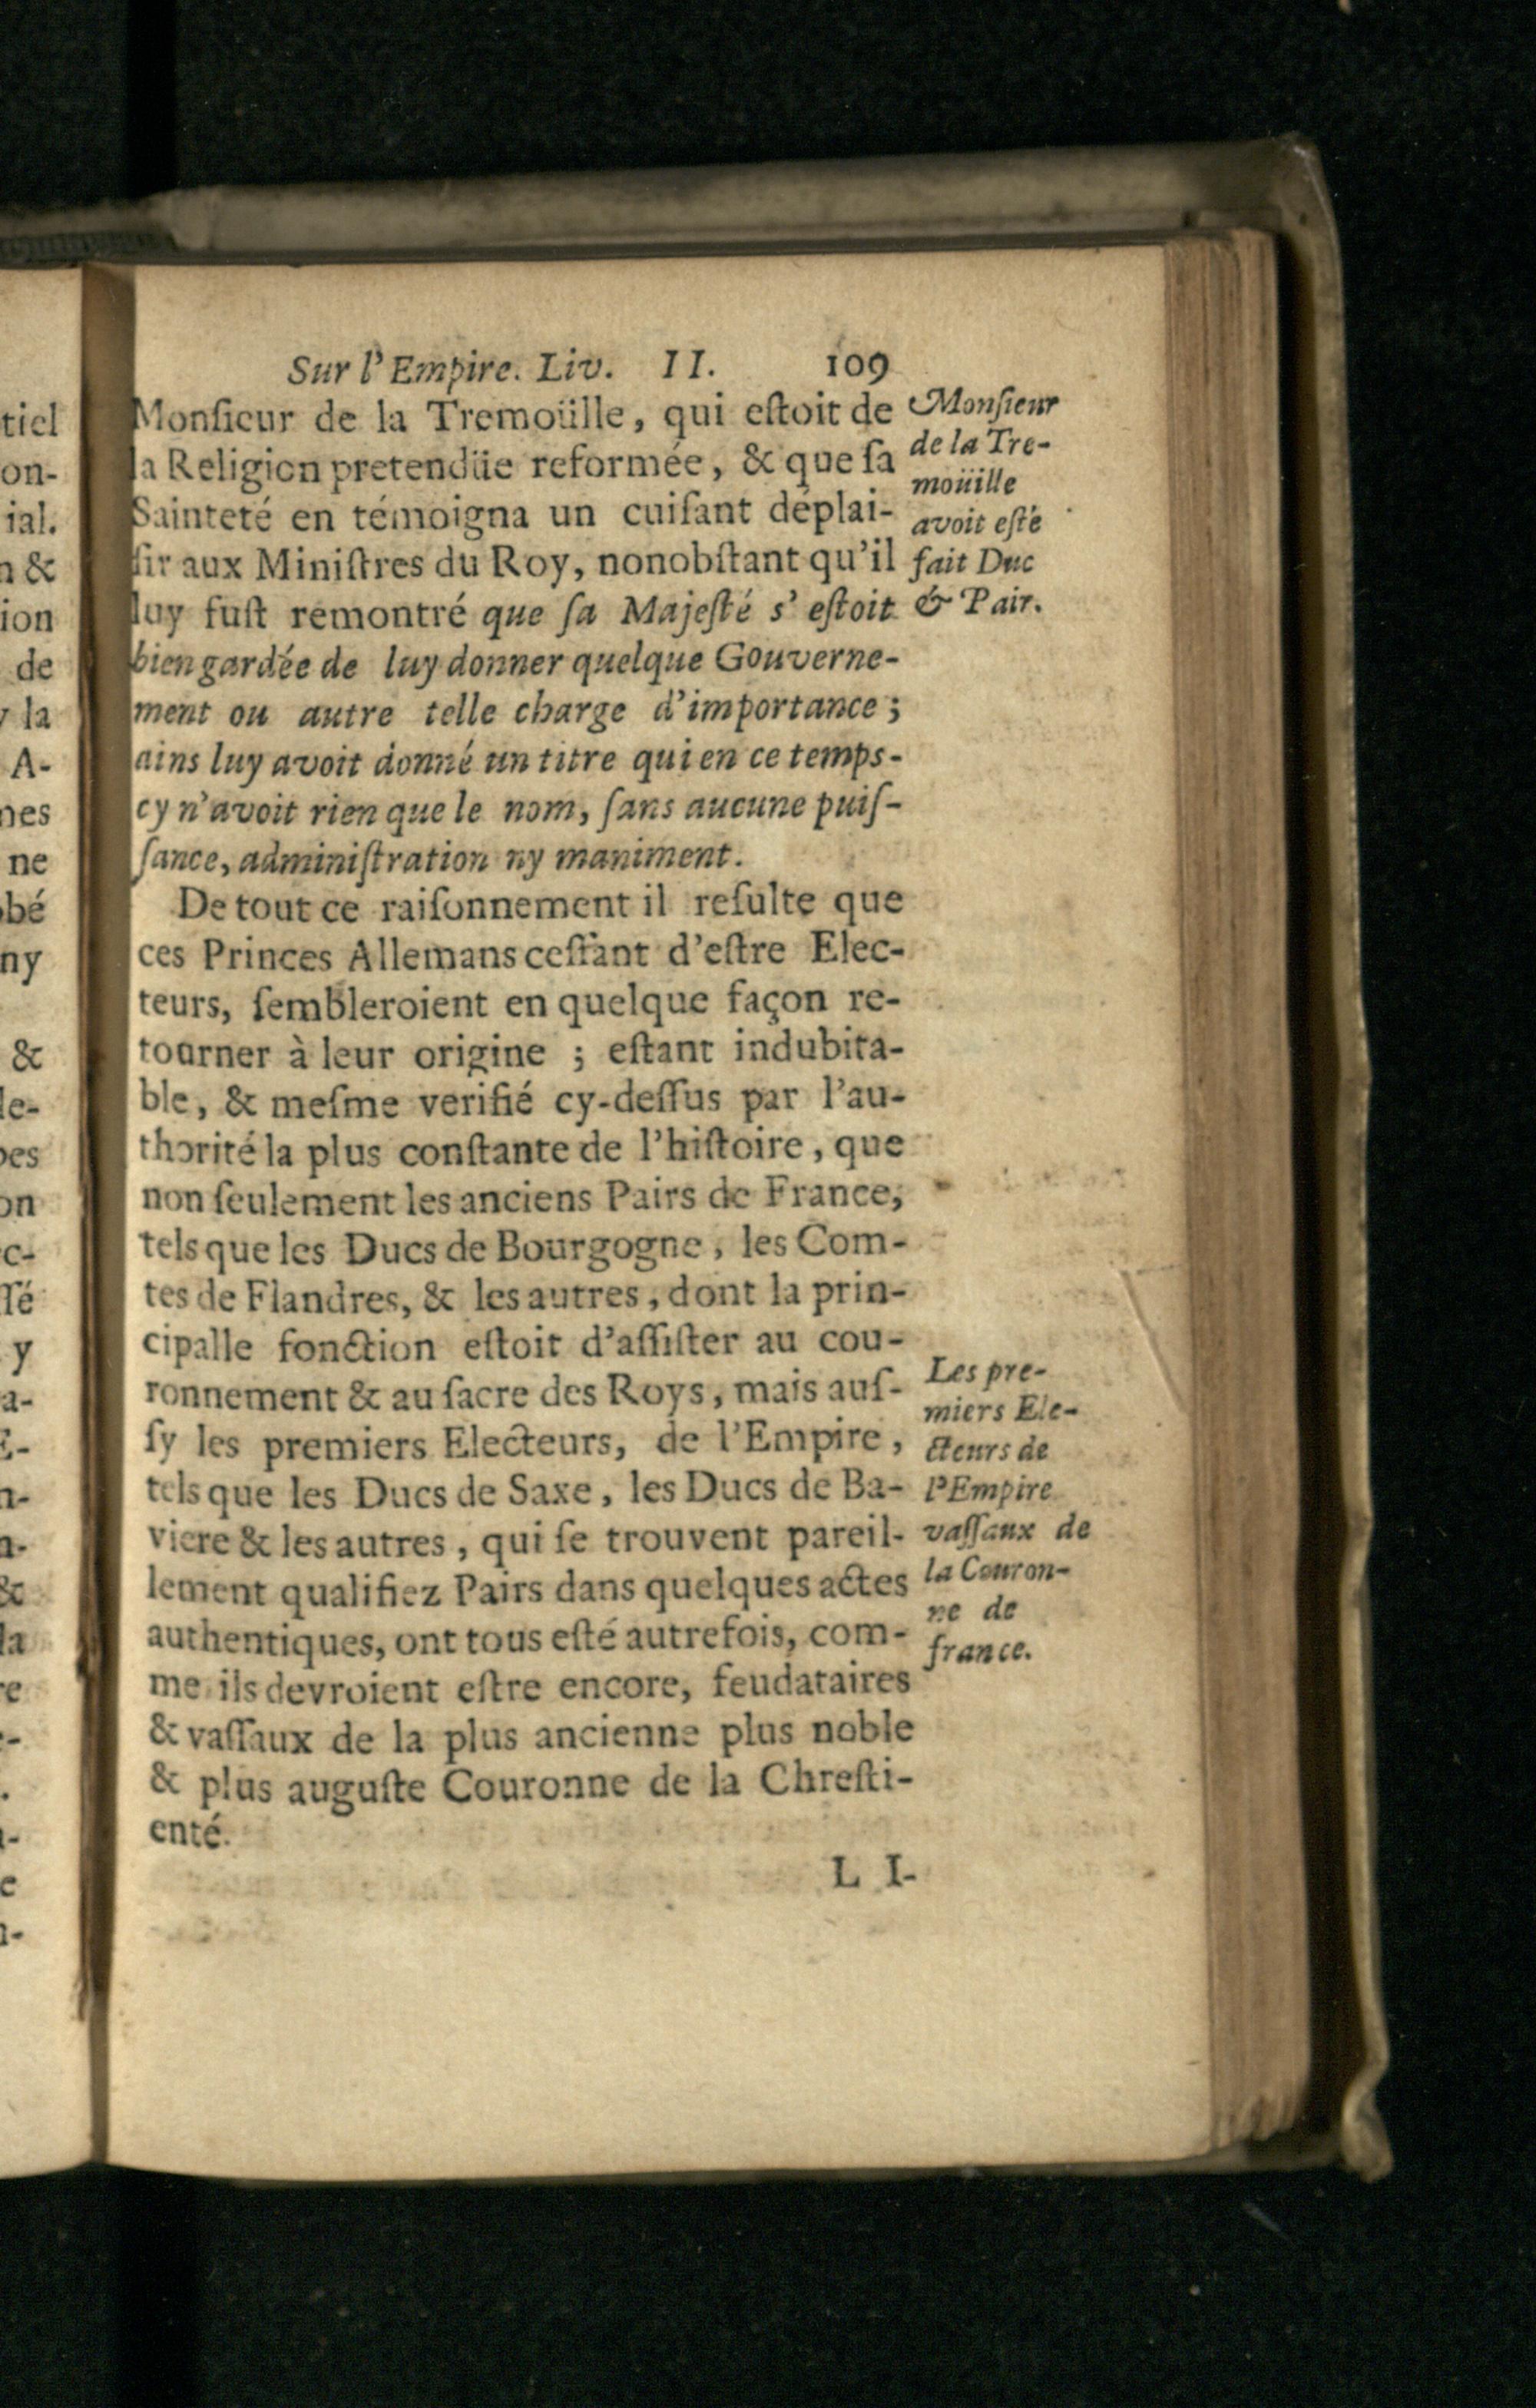 Sur l'Empire. Liv. II. 109
Monſieur de la Tremoüille, qui eſtoit de
la Religion pretendüe reformée, & que ſa
Sainteté en témoigna un cuiſant déplai-
ſir aux Miniſtres du Roy, nonobſtant qu'il
luy fuſt remontré que ſa Majeſté s' eſtoit
bien gardée de luy donner quelque Gouverne-
ment ou autre telle charge d'importance ;
ains luy avoit donné un titre qui en ce temps-
cy n'avoit rien que le nom, ſans aucune puiſ-
ſance, adminiſtration ny maniment.
De tout ce raiſonnement il reſulte que
ces Princes Allemans ceſſant d'eſtre Elec-
teurs, ſembleroient en quelque façon re-
tourner à leur origine ; eſtant indubita-
ble, & meſme verifié cy-deſſus par l'au-
thorité la plus conſtante de l'hiſtoire, que
non ſeulement les anciens Pairs de France,
tels que les Ducs de Bourgogne, les Com-
tes de Flandres, & les autres, dont la prin-
cipalle fonction eſtoit d'aſſiſter au cou-
ronnement & au ſacre des Roys, mais auſ-
ſy les premiers Electeurs, de l'Empire,
tels que les Ducs de Saxe, les Ducs de Ba-
viere & les autres, qui ſe trouvent pareil-
lement qualifiez Pairs dans quelques actes
authentiques, ont tous eſté autrefois, com-
me ils devroient eſtre encore, feudataires
& vaſſaux de la plus ancienne plus noble
& plus auguſte Couronne de la Chreſti-
enté.
L I-
Monſieur
de la Tre-
moüille
avoit eſté
fait Duc
& Pair.
Les pre-
miers Ele-
cteurs de
l'Empire
vaſſaux de
la Couron-
ne de
france.
tiel
on-
ial.
n &
ion
de
y la
A-
nes
ne
bé
ny
&
le-
pes
on
c-
ſſé
y
a-
E-
n-
n-
&
la
re
e-
e